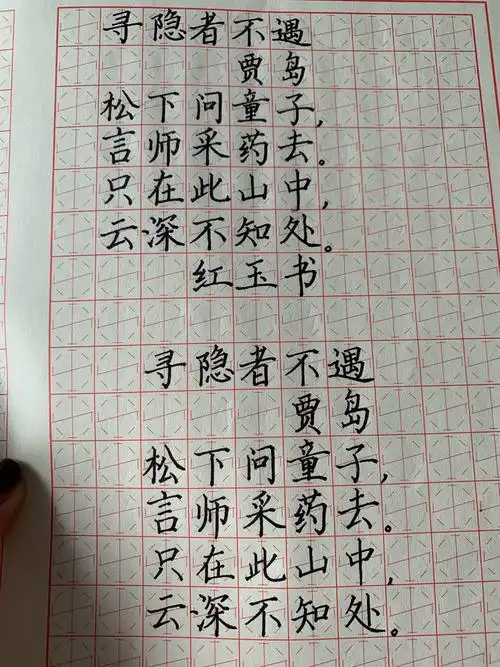 寻隐者不遇
贾岛
松下问童子,
言师采药去。
只在此山中,
云深不知处。
红玉书
寻隐者不遇
贾岛
松下问童子,
言师采药去。
只在此山中,
云深不知处。